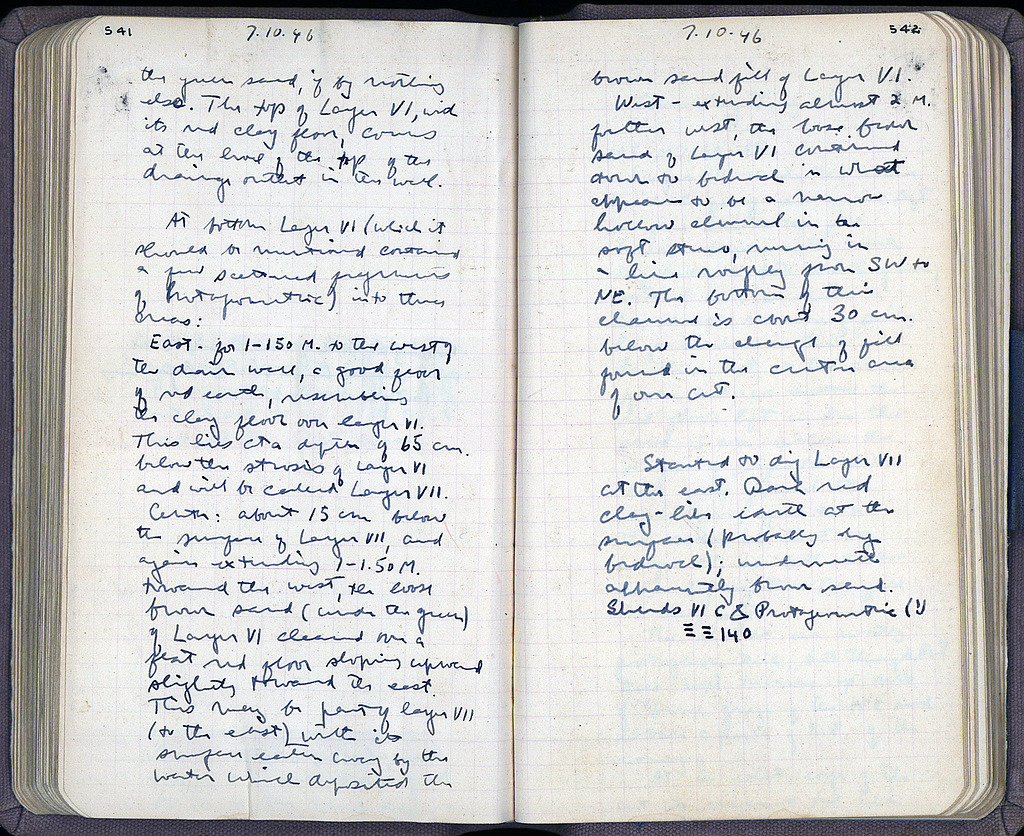 541
7.10.46
the green sand, if by nothing
else. The top of Layer VI, with
its red clay floor, comes
at the level of the top of the
drainage outlet in the well.
At bottom Layer VI (which it
should be mentioned contained
a few scattered fragments
of Protogeometric) into three
areas:
East - for 1-150 M. to the west of
the drain well, a good floor
of red earth, resembling
the clay floor over layer VI.
This lies at a depth of 65 cm.
below the strosis of Layer VI
and will be called Layer VII.
Center: about 15 cm below
the surface of Layer VII, and
again extending 1-1.50 M.
toward the west, the loose
brown sand (under the green)
of Layer VI cleared over a
flat red floor sloping upward
slightly toward the east.
This may be part of layer VII
(to the east) with its
surface eaten away by the
water which deposited the
7.10.46
542
brown sand fill of Layer VI.
West - extending almost 2 M.
further west, the loose brown
sand of Layer VI continued
down to bedrock in what
appears to be a narrow
hollow channel in the
soft stereo, running in
a line roughly from SW to
NE. The bottom of this
channel is about 30 cm.
below the change of fill
found in the center area
of our cut.
Started to dig Layer VII
at the east. Dark red
clay-like earth at the
surface (probably dug
bedrock); underneath
alternately brown sand.
Sherds VI C & Protogeometric (?)
ΞΞ 140